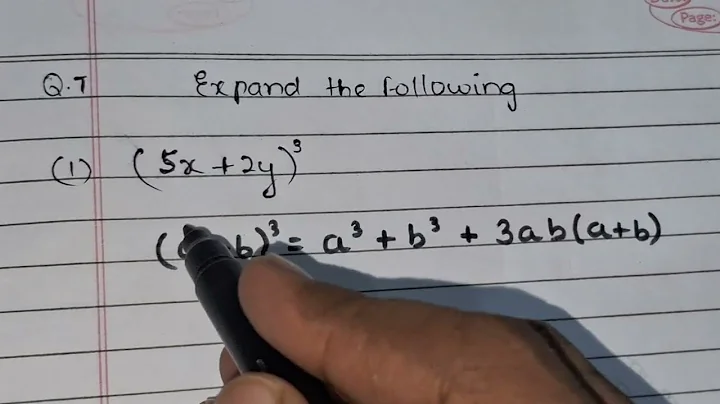 Page:
Q.7 Expand the following
(1) (5x+2y)³
b)³ = a³ + b³ + 3ab(a+b)